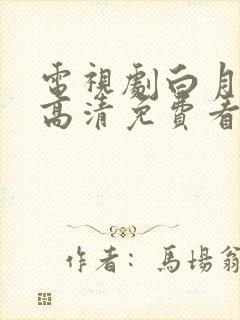 電視劇白月
高清免費看
作者：馬場翁